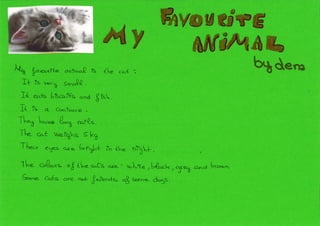 My FAVOURITE
ANIMAL
by dens
My favourite animal is the cat:
It is very small.
It eats biscuits and fish.
It is a carnivore.
They have long tails.
The cat weighs 5 kg
Their eyes are bright in the night.
The colours of the cats are: white, black, grey and brown
Some cats are not friends of some dogs.